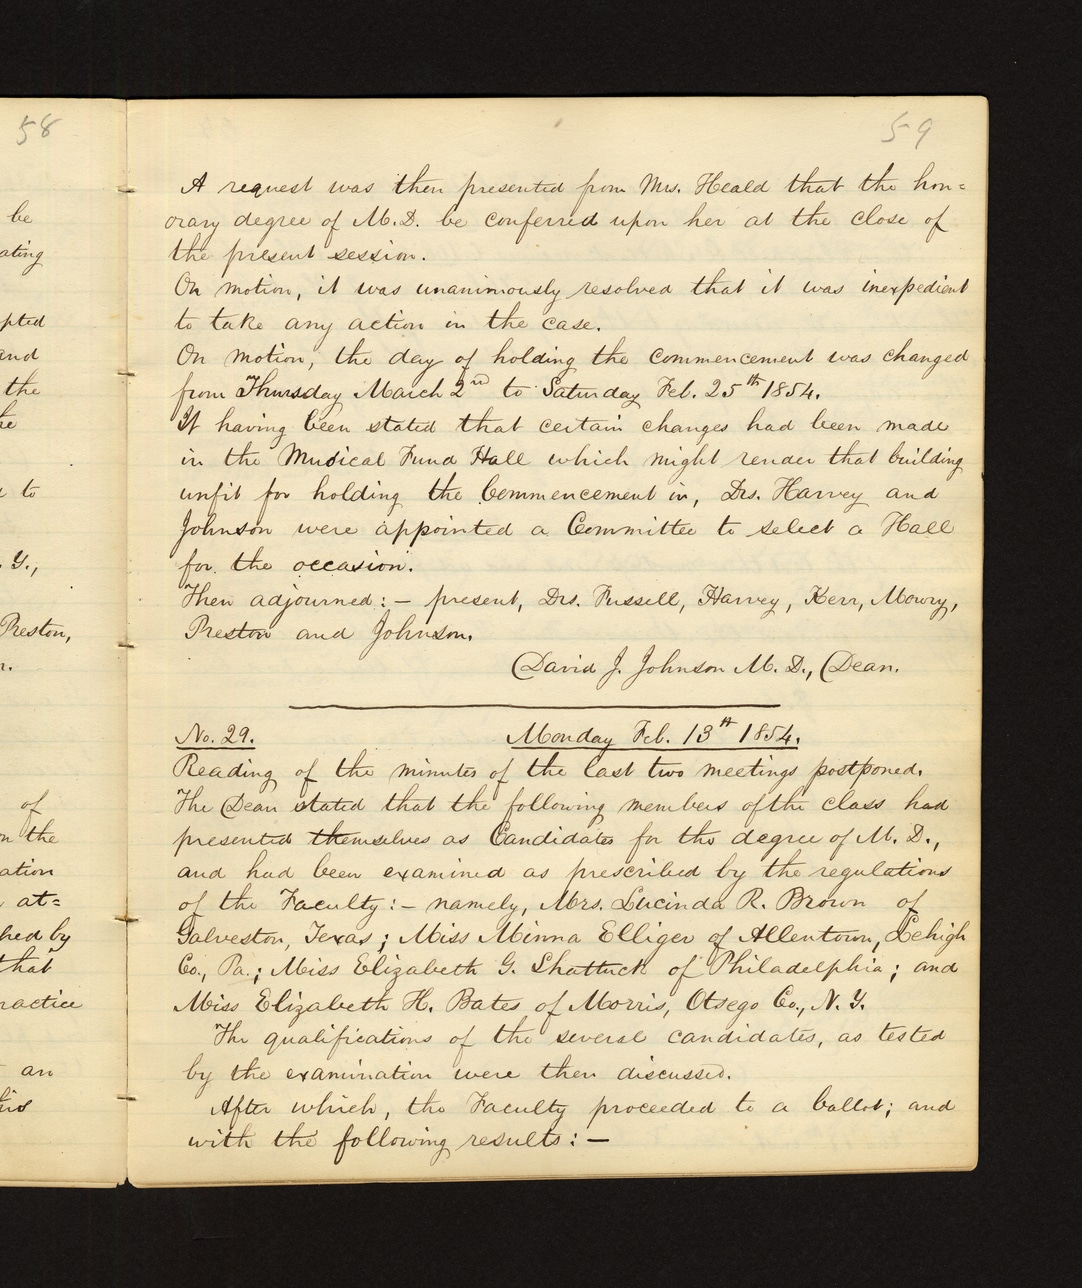 58
be
ating
pted
and
the
he
to
Y.,
Preston,
of
on the
ation
at=
hed by
that
ractice
an
his
59
A request was then presented from Mrs. Heald that the hon=
orary degree of M.D. be conferred upon her at the close of
the present session.
On motion, it was unanimously resolved that it was inexpedient
to take any action in the case.
On motion, the day of holding the commencement was changed
from Thursday March 2nd to Saturday Feb. 25th 1854.
It having been stated that certain changes had been made
in the Musical Fund Hall which might render that building
unfit for holding the Commencement in, Drs. Harvey and
Johnson were appointed a Committee to select a Hall
for the occasion.
Then adjourned:— present, Drs. Fussell, Harvey, Kerr, Mowry,
Preston and Johnson.
David J. Johnson M.D., Dean.
No. 29. Monday Feb. 13th 1854.
Reading of the minutes of the last two meetings postponed.
The Dean stated that the following members of the class had
presented themselves as Candidates for the degree of M.D.,
and had been examined as prescribed by the regulations
of the Faculty:— namely, Mrs. Lucinda R. Brown of
Galveston, Texas; Miss Minna Elliger of Allentown, Lehigh
Co., Pa.; Miss Elizabeth G. Shattuck of Philadelphia; and
Miss Elizabeth H. Bates of Morris, Otsego Co., N.Y.
The qualifications of the several candidates, as tested
by the examination were then discussed.
After which, the Faculty proceeded to a ballot; and
with the following results:—